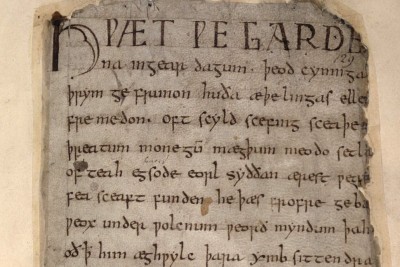 HǷÆT ǷE GARDE
na in gear dagum. þeod cyninga
þrym ge frunon huða æþelingas elle
fremedon. oft scyld scefing sceaþe
þreatum monegū mægþum meodo setla
of teah egsode eorl syððan ærest ƿear
fea sceaft funden he þæs frofre geba
ƿeox under ƿolcnum ƿeorð myndum þah
oð ꝥ him æghƿylc þara ymb sittendra